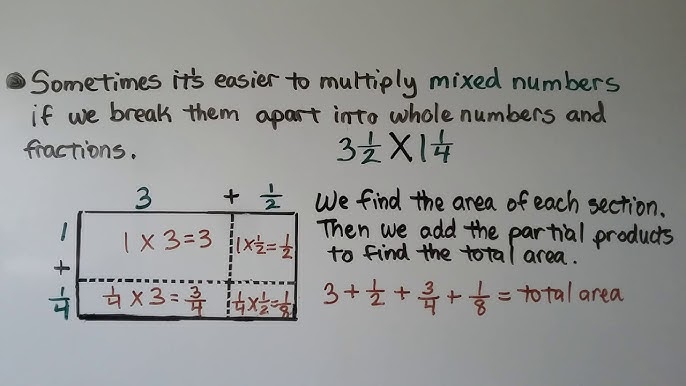 Sometimes it's easier to multiply mixed numbers
if we break them apart into whole numbers and
fractions.
3 1/2 X 1 1/4
3 + 1/2
1 + 1/4
1 X 3 = 3
1 X 1/2 = 1/2
1/4 X 3 = 3/4
1/4 X 1/2 = 1/8
We find the area of each section.
Then we add the partial products
to find the total area.
3 + 1/2 + 3/4 + 1/8 = total area